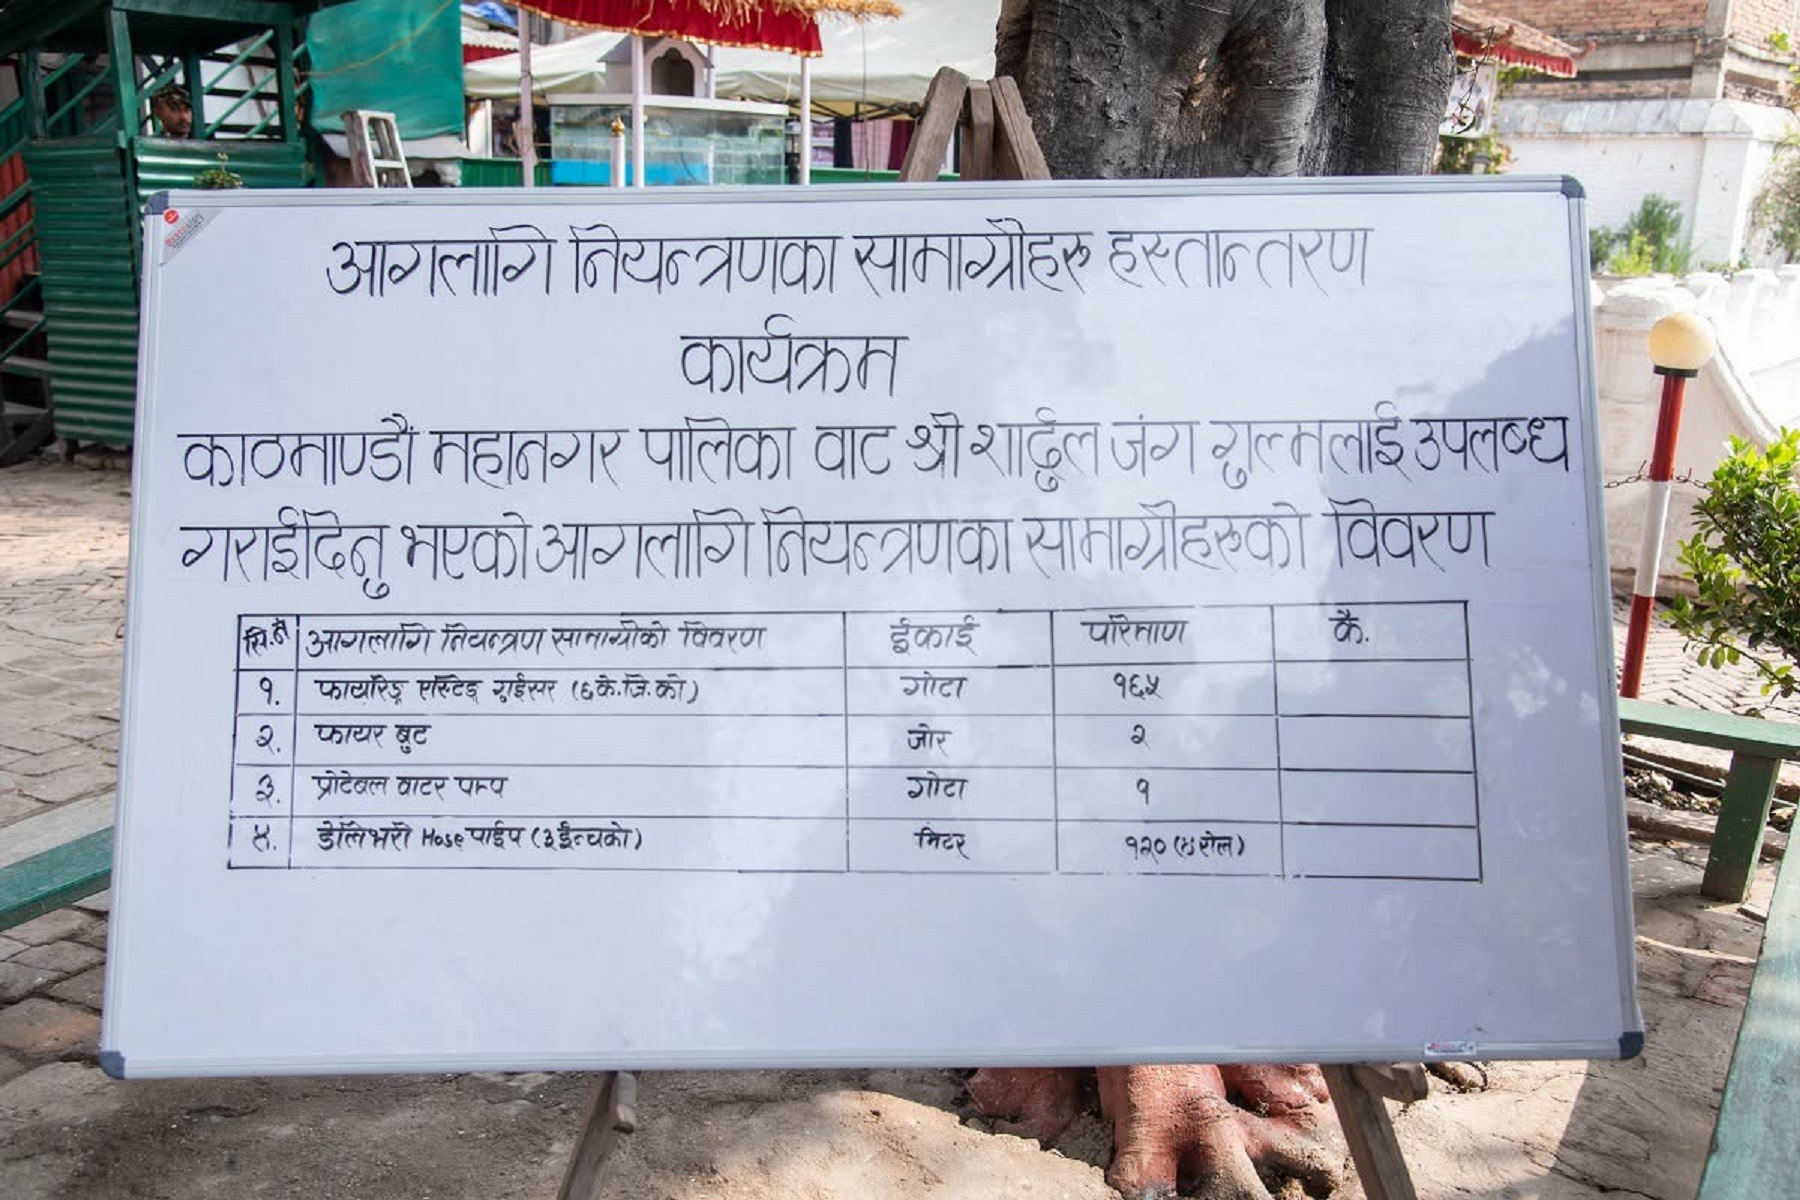 आगलागि नियन्त्रणका सामाग्रीहरु हस्तान्तरण
कार्यक्रम
काठमाण्डौं महानगर पालिका वाट श्री शार्दुल जंग गुल्मलाई उपलब्ध
गराईदिनु भएको आगलागि नियन्त्रणका सामाग्रीहरुको विवरण
सि.नं आगलागि नियन्त्रण सामाग्रीको विवरण ईकाई परिमाण कै.
१. फायरिङ्ग एस्टिङ्गुईसर (६के.जि.को) गोटा १६५
२. फायर बुट जोर २
३. प्रोटेबल वाटर पम्प गोटा १
४. डेलिभरी Hose पाईप (३ईन्चको) मिटर १२० (४रोल)